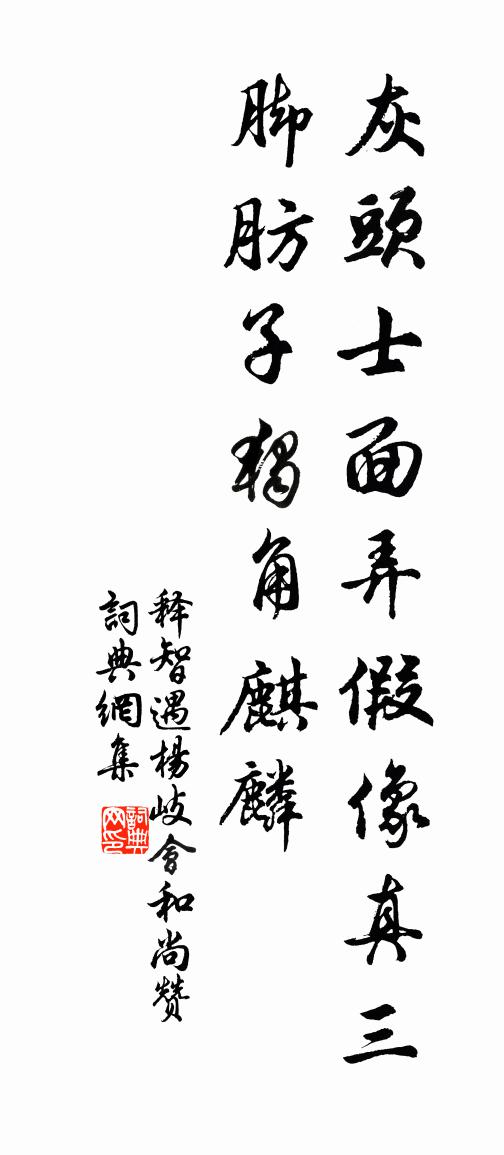 灰頭士面弄假像真三
脚肪子獨角麒麟
释智遇楊岐會和尚赞
詞典網集
詞典
网印